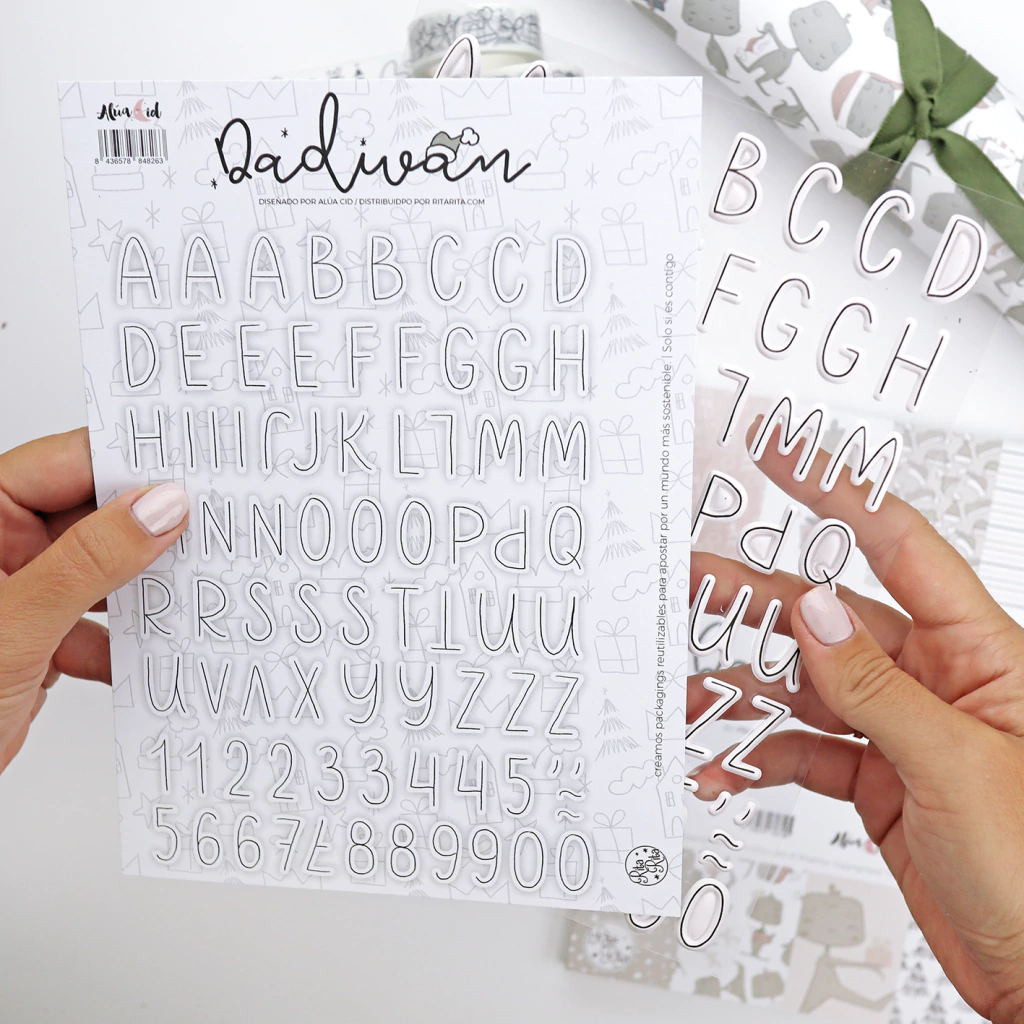 Alúa Cid
8 436578 848263
Dadivan
DISEÑADO POR ALÚA CID / DISTRIBUIDPO POR RITARITA.COM
A A A B B C C D
D E E E F F G G H
H I I I J K L L M M
N N N O O O P P Q
R R S S S T T U U
U V A X Y Y Z Z Z
1 1 2 2 3 3 4 4 5 ´ ´ ~
5 6 6 7 7 8 8 9 9 0 0
creamos packagings reutilizables para apostar por un mundo más sostenible | Solo si es contigo
Rita Rita
B C C D
F G G H
L M M
P P Q
U U
Z Z
0
Alúa